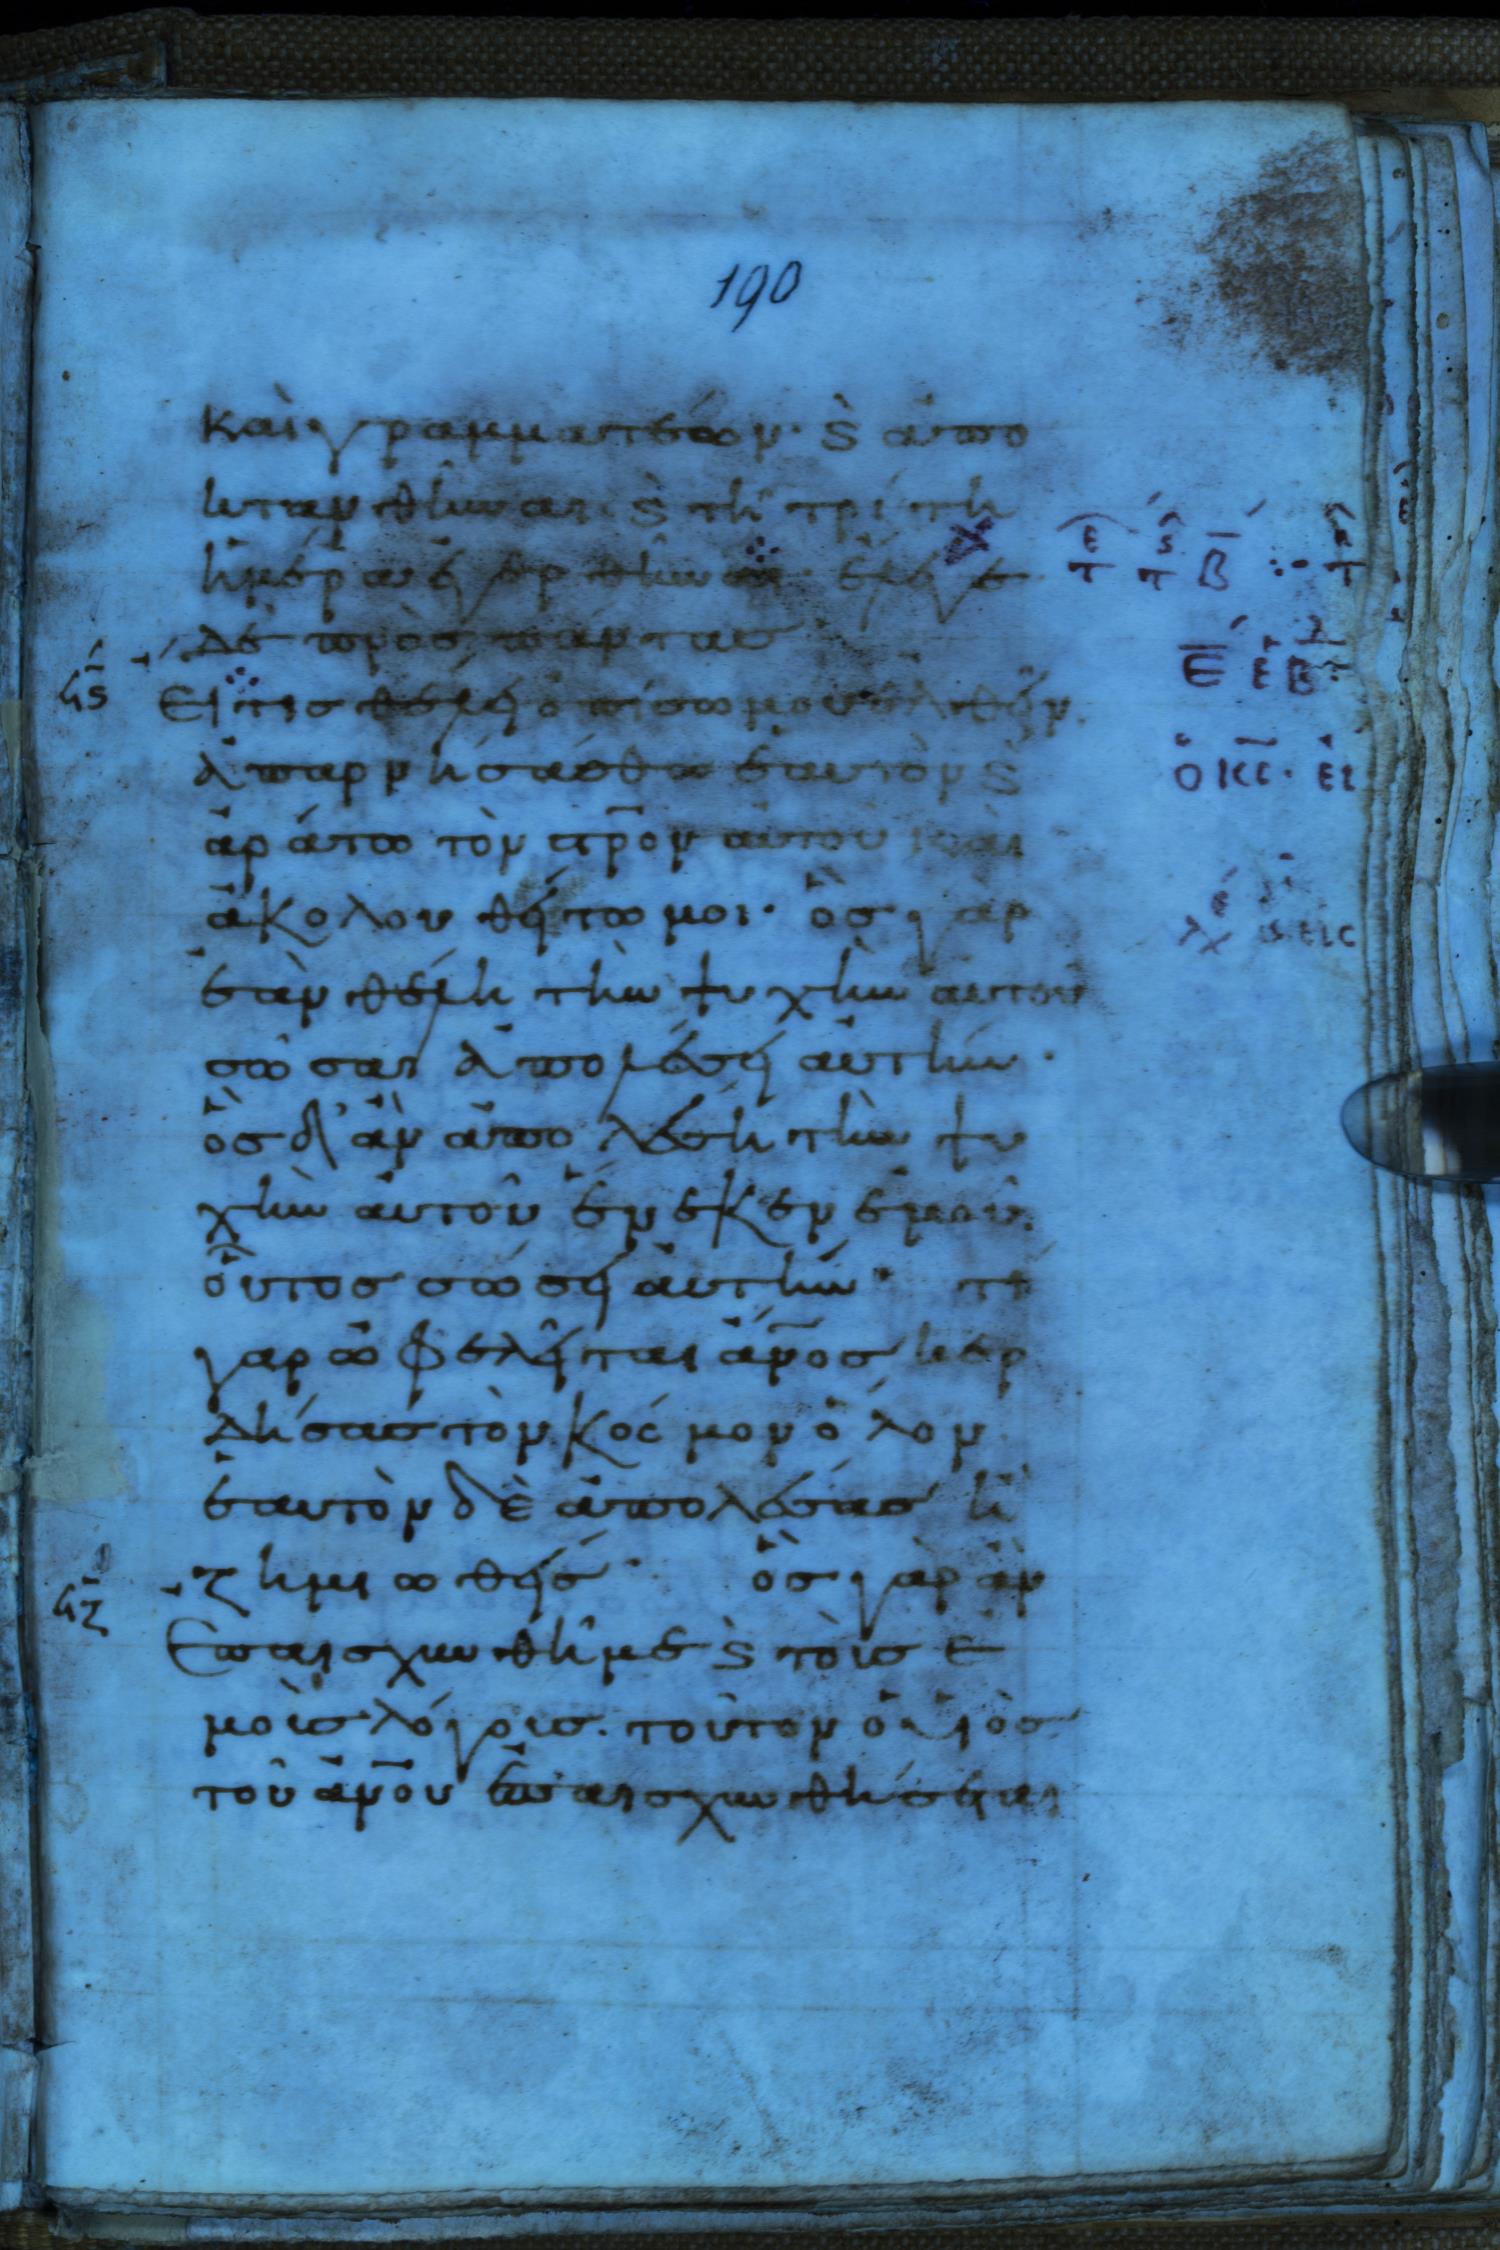 190
καὶ γραμματέων· ϛ̀ ἀπο
κτανθῆναι ϛ̀ τῆ τρίτη
ἡμέρα ἐγερθῆναι· ἔλεγε
δὲ πρὸς πάντας
ϟϛ Εἴ τις θέλει ὀπίσω μου ἐλθεῖν,
ἀπαρνησάσθω ἑαυτὸν ϛ̀
ἀράτω τὸν στ̅ρον αὐτοῦ καὶ
ἀκολουθείτω μοι· ὃς γὰρ
ἐὰν θέλη τὴν ψυχὴν αὐτοῦ
σῶσαι ἀπολέσει αὐτήν·
ὃς δ' ἂν ἀπολέση τὴν ψυ
χὴν αὐτοῦ ἕνεκεν ἐμοῦ,
οὗτος σώσει αὐτήν· τί
γαρ ὠφελεῖται ἄν̅ος κερ
δήσας τὸν κόσμον ὅλον
ἑαυτὸν δὲ ἀπολέσας ἢ
ζημιωθείς· ὃς γὰρ ἂν
ϟζ Επαισχυνθῆ με ϛ̀ τοὺς ἐ
μοὺς λόγους. τοῦτον ὁ υἱὸς
τοῦ ἀν̅ου ἐπαισχυνθήσεται